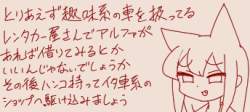 とりあえず趣味系の車を扱ってる
レンタカー屋さんでアルファが
あれば借りてみるとか
いいんじゃないでしょうか
その後ハンコ持ってイタ車系の
ショップへ駆け込みましょう